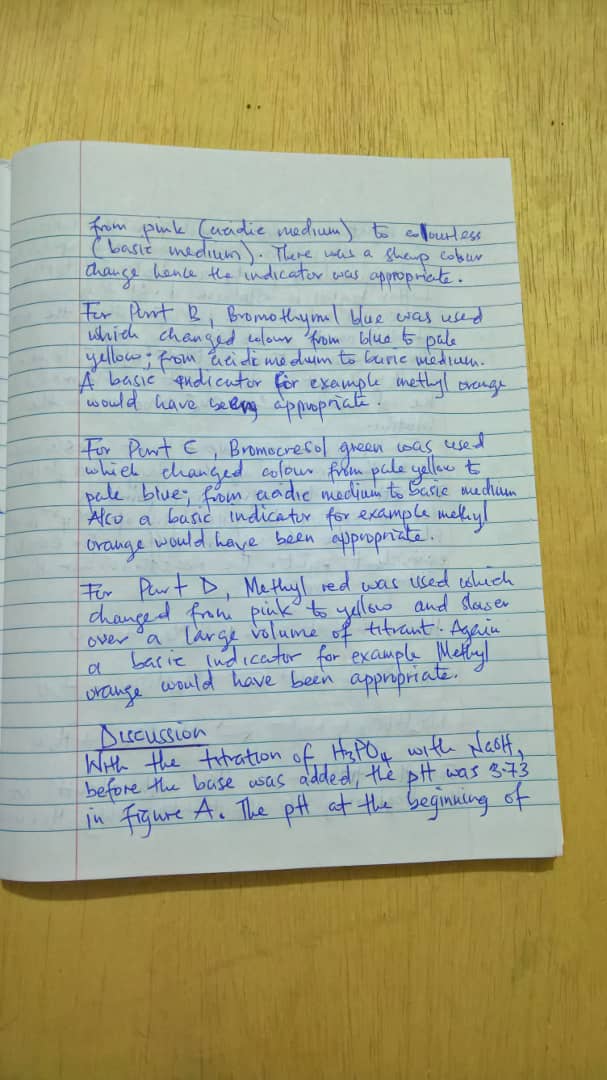 from pink (acidic medium) to colourless
(basic medium). There was a sharp colour
change hence the indicator was appropriate.
For Part B, Bromothymol blue was used
which changed colour from blue to pale
yellow; from acidic medium to basic medium.
A basic indicator for example methyl orange
would have being appropriate.
For Part C, Bromocresol green was used
which changed colour from pale yellow to
pale blue; from acidic medium to basic medium
Also a basic indicator for example methyl
orange would have been appropriate.
For Part D, Methyl red was used which
changed from pink to yellow and slower
over a large volume of titrant. Again
a basic indicator for example Methyl
orange would have been appropriate.
Discussion
With the titration of H₃PO₄ with NaOH,
before the base was added, the pH was 3.73
in figure A. The pH at the beginning of